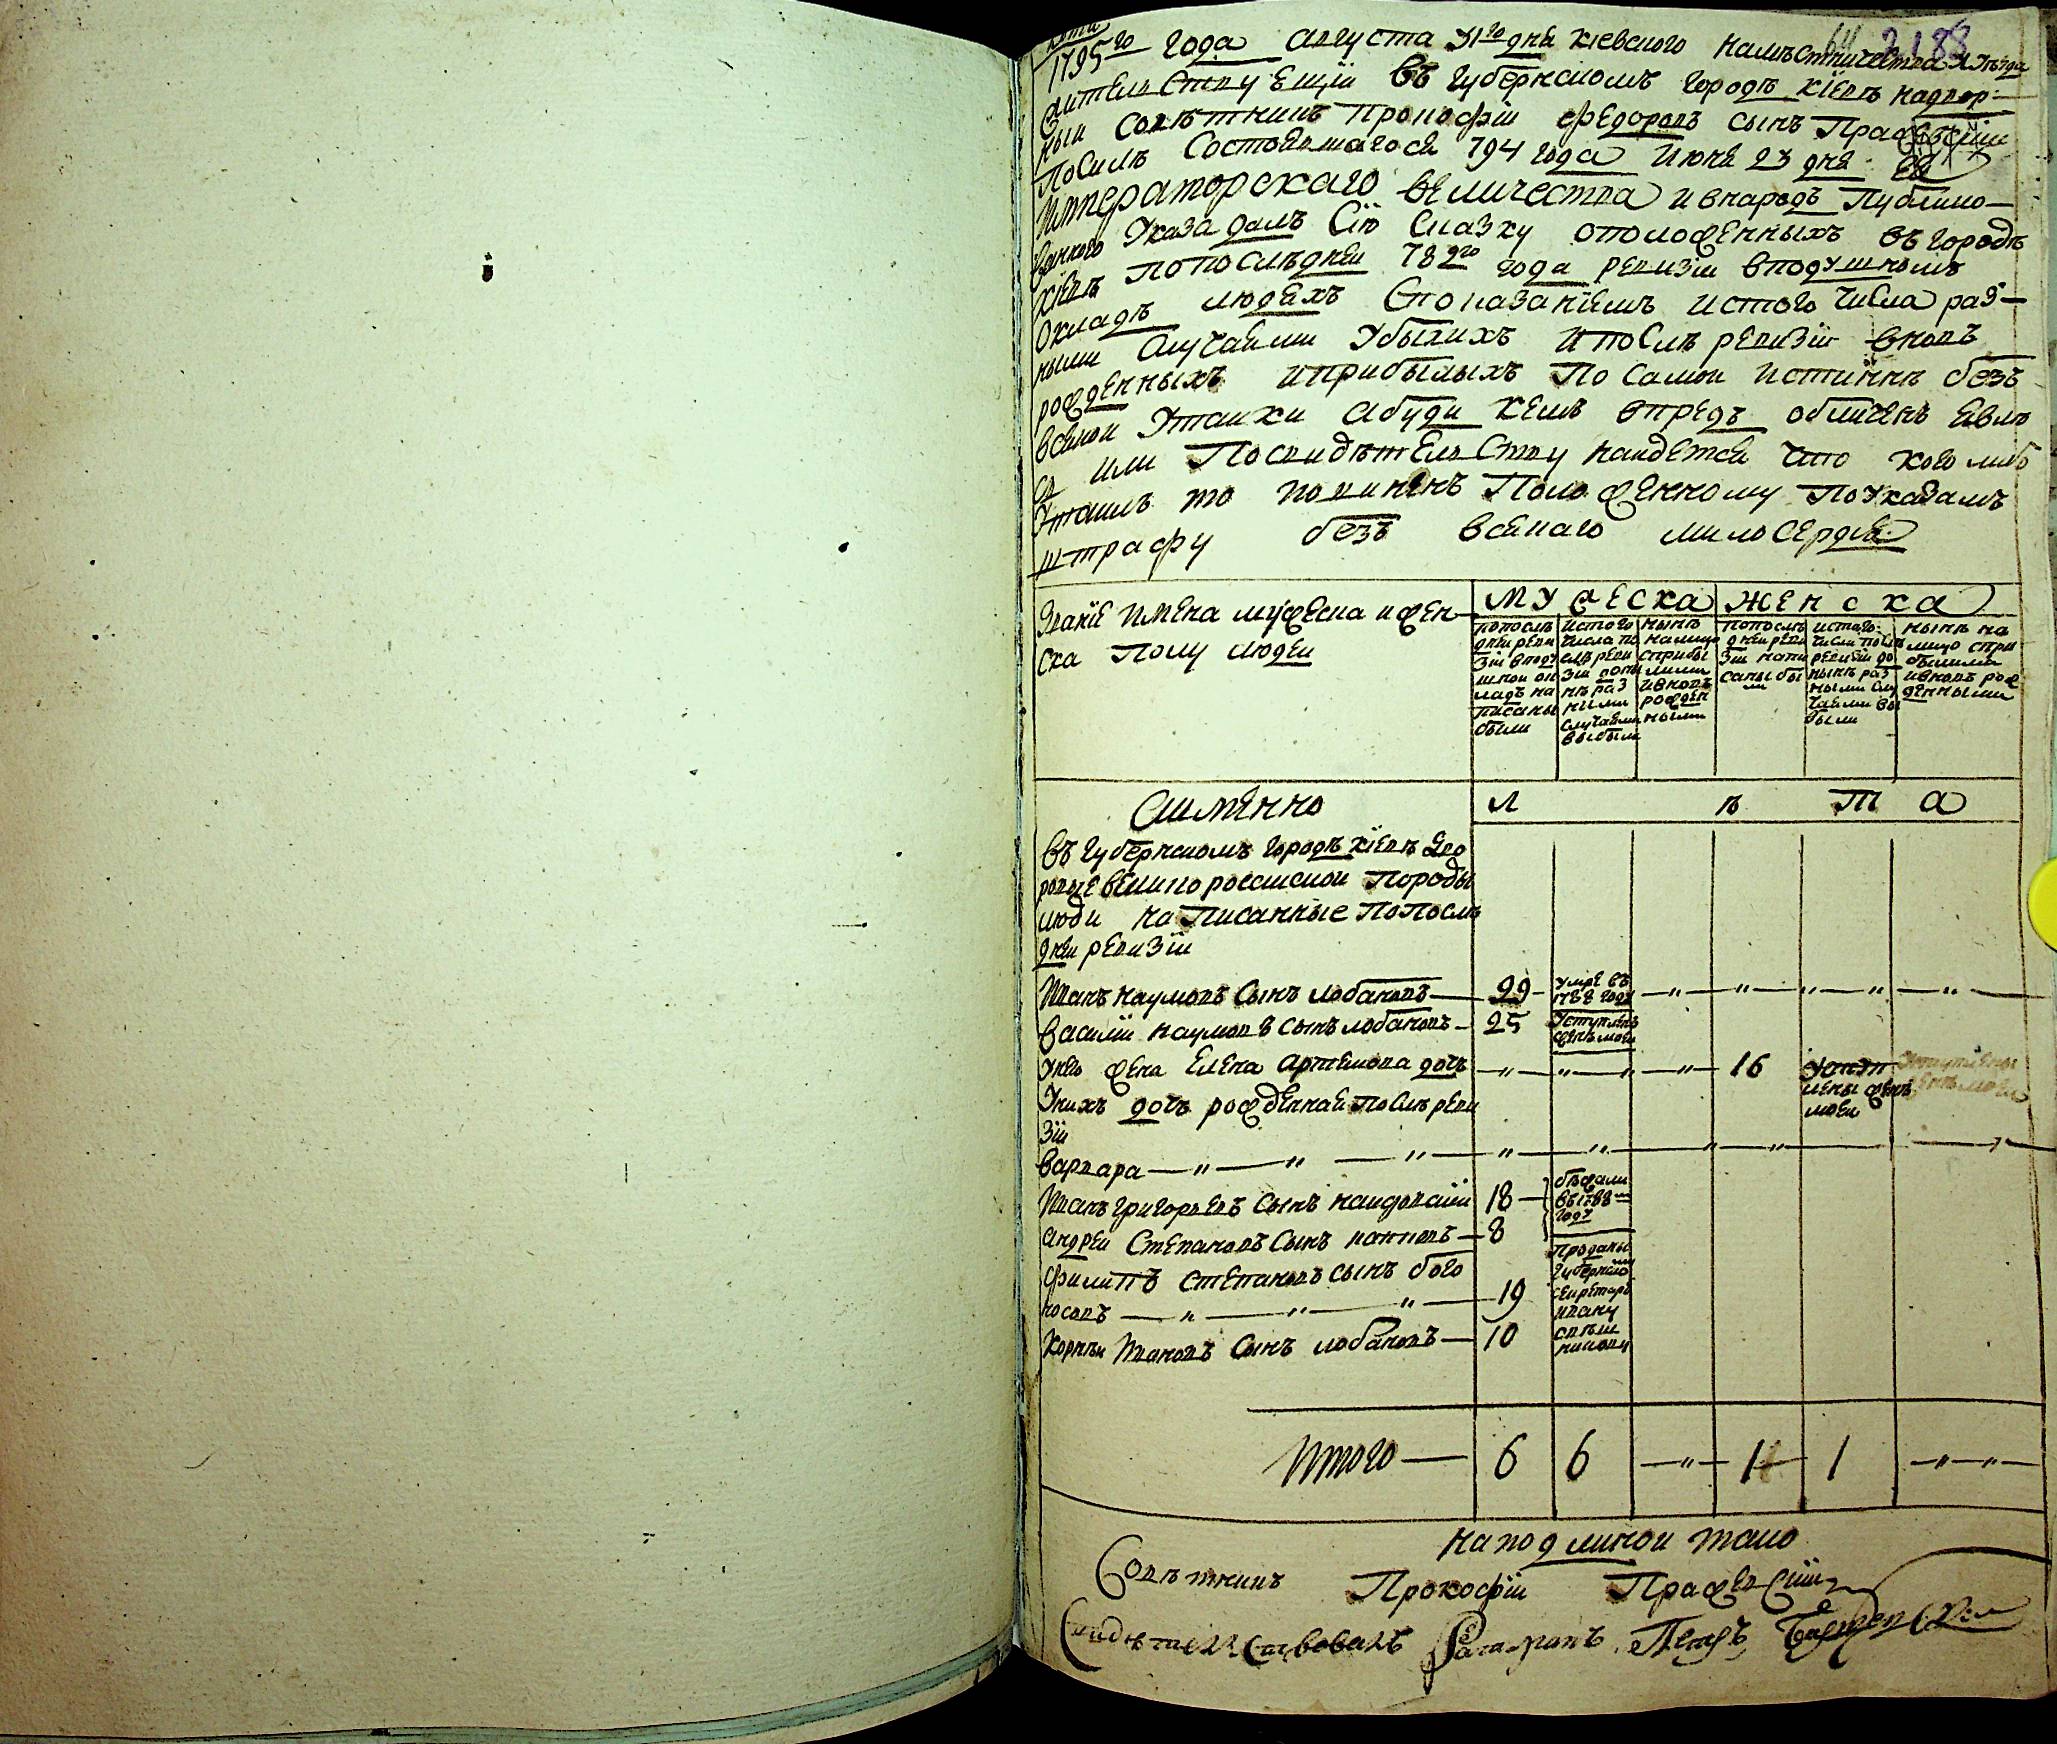 1795го года августа 31го дня киевского наместничества и уезда
жительствующий въ губернскомъ городѣ киевѣ надвор-
ный советникъ Прокофий федоровъ сынъ Пражевский
по силѣ состоявшагося 794 года июня 23 дня ея
императорскаго величества и внародъ публико-
ванного указа далъ сию сказку оположенныхъ въ городѣ
киевѣ попоследней 782го года ревизии вподушномъ
окладѣ людехъ споказаниемъ истого числа раз-
ными случаями убылихъ и послѣ ревизии вновь
рожденныхъ и прибылыхъ по самой истиннѣ безъ
всякой утайки а буди кемъ впредь обличенъ явлю
сь или по свидѣтельству найдется что кого либо
утаилъ то повиненъ положенному по указамъ
штрафу безъ всякаго милосердия
Звание имена мужеска и жен-
ска полу людей
мужеска женска
попослѣ
дней реви
зии вподу
шной ок
ладъ на
писаны
были
истого
числа по
слѣ реви
зии поны
нѣ раз
ными
случаями
выбыли
нынѣ
налицо
сприбы
лыми
ивновь
рожден
ными
попослѣ
дней реви
зии напи
саны бы
ли
истого
числа послѣ
ревизии до
нынѣ раз
ными слу
чаями вы
были
нынѣ на
лицо спри
былыми
ивновь рож
денными
а имянно
л ѣ т а
въ губернскомъ городѣ киевѣ дво
ровые великороссийской породы
люди написанные попослѣ
дней ревизии
Иванъ наумовъ сынъ лобановъ 29 умре въ 1788 годѣ
василий наумовъ сынъ лобановъ 25 уступленъ женѣ моей
унего жена елена артемова дочь 16 уступ лены женѣ моей уступлены женѣ моей
унихъ дочь рожденная послѣ реви
зии
варвара
Иванъ григорьевъ сынъ 18 бежали въ 1788м годѣ
андрей степановъ сынъ 8
филипъ степановъ сынъ бого 19 проданы губернско му секретарю ивану
носовъ
корнѣй Ивановъ сынъ лобановъ 10
Итого 6 6 1 1
на подлиной тако
Советникъ Прокофий Пражевский
Свидетелствовалъ Петръ